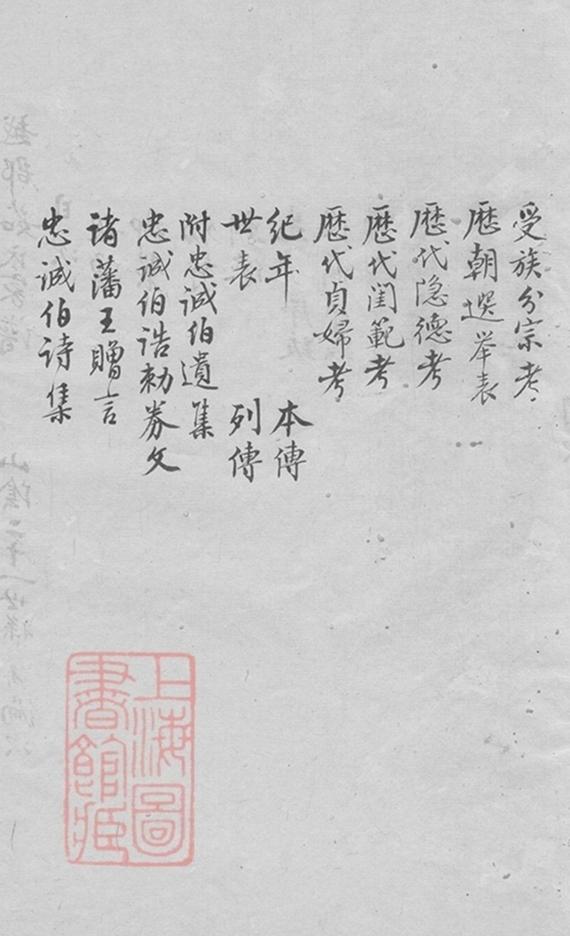 受族分宗考
歷朝選举表
歷代隐德考
歷代閨範考
歷代貞婦考
紀年 本傳
世表 列傳
附忠诚伯遺集
忠诚伯诰勅券文
诸藩王贈言
忠诚伯诗集
上海圖
書館藏